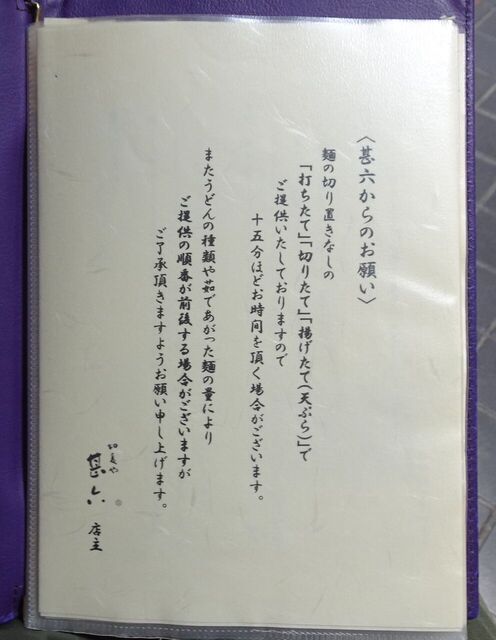 〈甚六からのお願い〉
麺の切り置きなしの
「打ちたて」「切りたて」「揚げたて(天ぷら)」で
ご提供いたしておりますので
十五分ほどお時間を頂く場合がございます。
またうどんの種類や茹であがった麺の量により
ご提供の順番が前後する場合がございますが
ご了承頂きますようお願い申し上げます。
甚六 店主